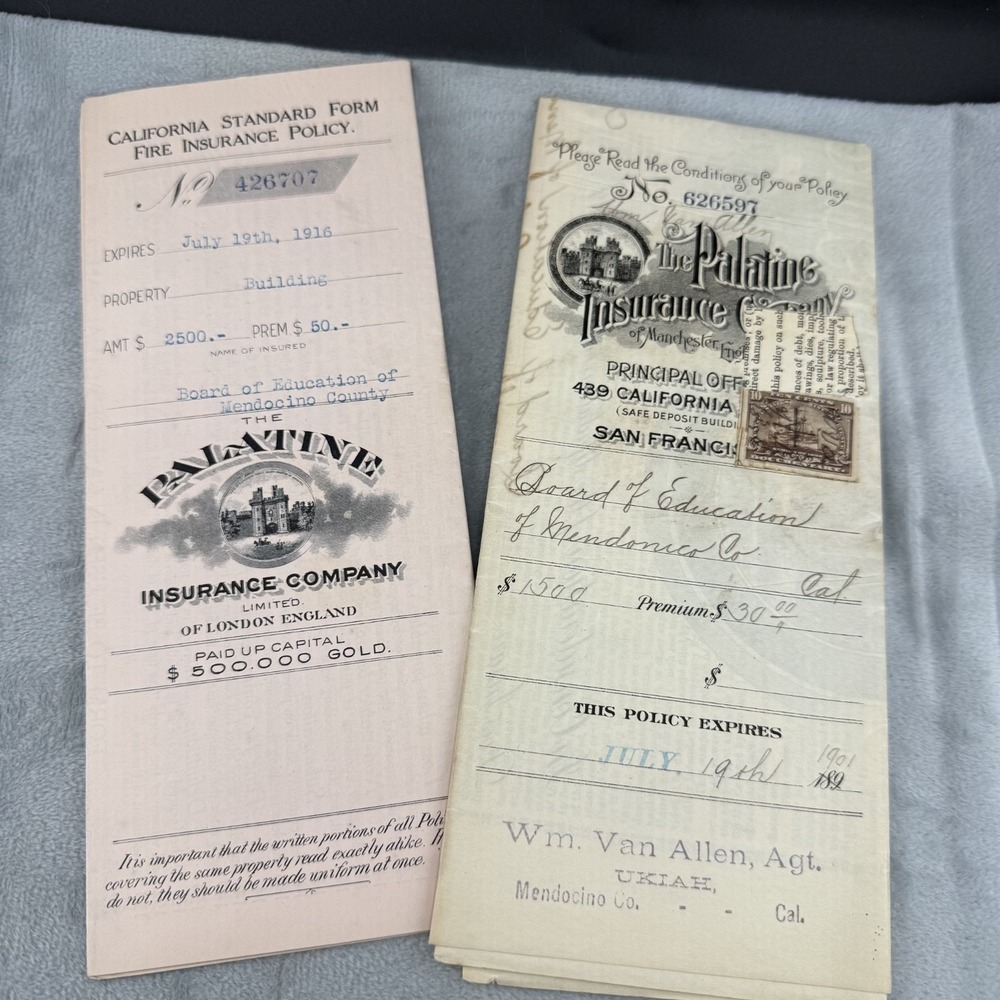 CALIFORNIA STANDARD FORM
FIRE INSURANCE POLICY.
No. 426707
EXPIRES July 19th, 1916
PROPERTY Building
AMT $ 2500.- PREM. $ 50.-
NAME OF INSURED
Board of Education of
Mendocino County
THE
PALATINE
INSURANCE COMPANY
LIMITED.
OF LONDON ENGLAND
PAID UP CAPITAL
$ 500.000 GOLD.
It is important that the written portions of all Poli
covering the same property read exactly alike. If
do not, they should be made uniform at once.
Please Read the Conditions of your Policy
No. 626597
Van Allen
The Palatine
Insurance Company
of Manchester, Eng
PRINCIPAL OFF
439 CALIFORNIA
(SAFE DEPOSIT BUILDI
SAN FRANCIS
direct damage by
this policy on such
nces of debt, mon
awings, dies, imp
s, sculpture, tools
or law regulating
proportion of
described.
10 10
Board of Education
of Mendonico Co.
Cal
$ 1500 Premium $ 30 00
$
THIS POLICY EXPIRES
JULY. 19th 1901
189
Wm. Van Allen, Agt.
UKIAH,
Mendocino Co. - - Cal.